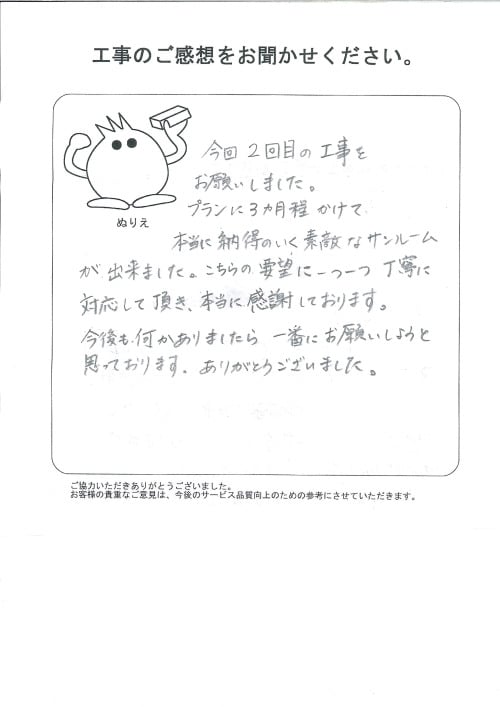 工事のご感想をお聞かせください。
ぬりえ
今回2回目の工事を
お願いしました。
プランに3カ月程かけて
本当に納得のいく素敵なサンルーム
が出来ました。こちらの要望に一つ一つ丁寧に
対応して頂き、本当に感謝しております。
今後も何かありましたら一番にお願いしようと
思っております。ありがとうございました。
ご協力いただきありがとうございました。
お客様の貴重なご意見は、今後のサービス品質向上のための参考にさせていただきます。